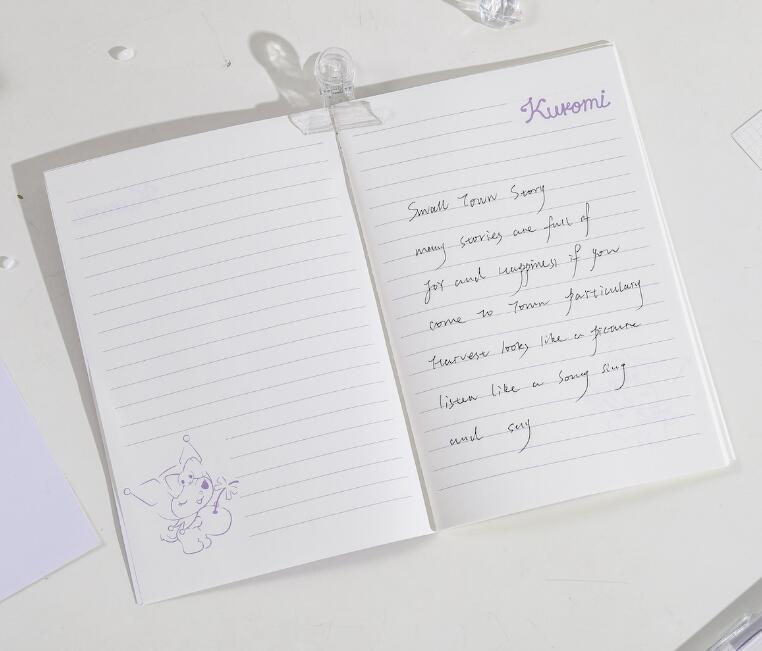 Kuromi
Small Town Story
many stories are full of
joy and happiness if you
come to Town particulary
Harvest looks like a picture
listen like a Song sing
and say